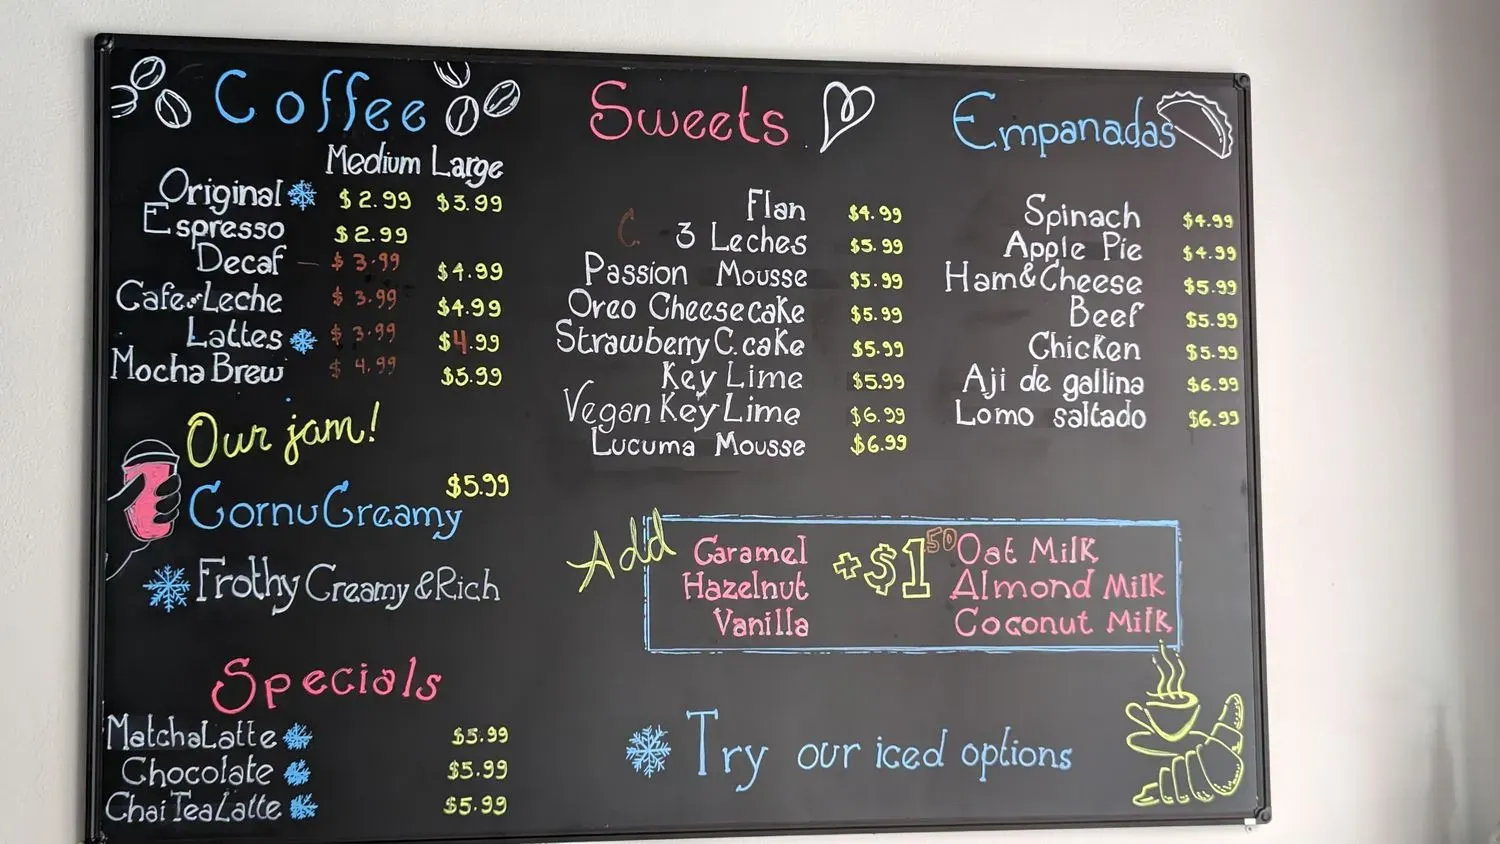 Coffee
Medium Large
Original $2.99 $3.99
Espresso $2.99
Decaf $3.99 $4.99
Cafe Leche $3.99 $4.99
Lattes $3.99 $4.99
Mocha Brew $4.99 $5.99
Our jam!
CornuCreamy $5.99
Frothy Creamy & Rich
Specials
Matcha Latte $5.99
Chocolate $5.99
Chai Tea Latte $5.99
Sweets
Flan $4.99
C. 3 Leches $5.99
Passion Mousse $5.99
Oreo Cheesecake $5.99
Strawberry C.cake $5.99
Key Lime $5.99
Vegan Key Lime $6.99
Lucuma Mousse $6.99
Empanadas
Spinach $4.99
Apple Pie $4.99
Ham&Cheese $5.99
Beef $5.99
Chicken $5.99
Aji de gallina $6.99
Lomo saltado $6.99
Add
Caramel +$1 50 Oat Milk
Hazelnut Almond Milk
Vanilla Coconut Milk
Try our iced options